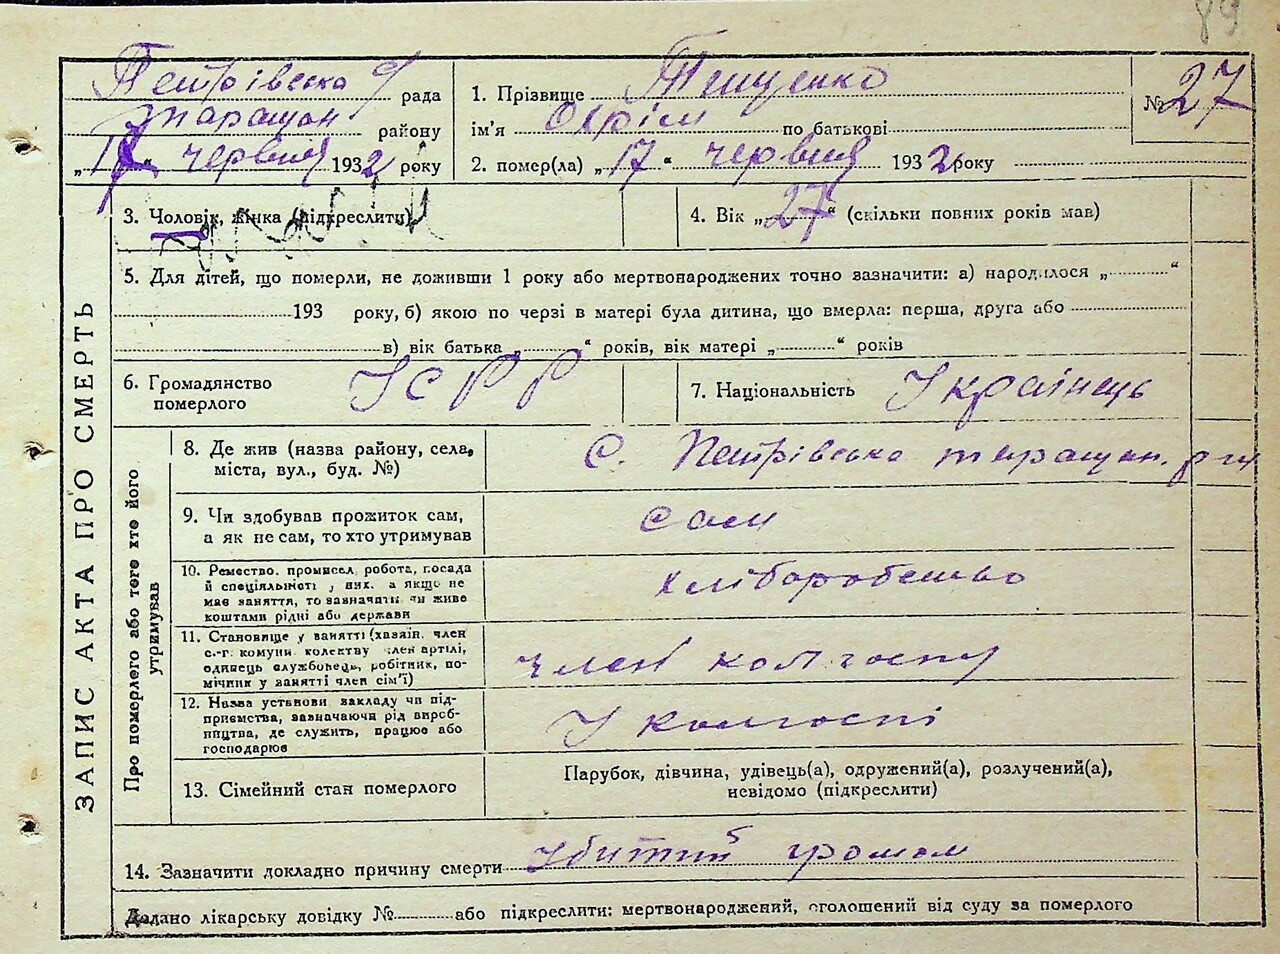 89
Петрівська с/рада
Таращан району
№ 27
"17" червня 1932 року
1. Прізвище Тищенко
ім'я Охрім по батькові
2. помер(ла) „17" червня 1932 року
3. Чоловік, жінка (підкреслити)
4. Вік „27" (скільки повних років мав)
5. Для дітей, що померли, не доживши 1 року або мертвонароджених точно зазначити: а) народилося „ "
193 року, б) якою по черзі в матері була дитина, що вмерла: перша, друга або
в) вік батька „ " років, вік матері „ " років
6. Громадянство померлого УСРР
7. Національність Українець
ЗАПИС АКТА ПРО СМЕРТЬ
Про померлого або того хто його утримував
8. Де жив (назва району, села, міста, вул., буд. №) С. Петрівська таращан. р-ну
9. Чи здобував прожиток сам, а як не сам, то хто утримував сам
10. Ремество, промисел, робота, посада й спеціяльність у них, а якщо не має заняття, то зазначити чи живе коштами рідні або держави хліборобство
11. Становище у занятті (хазяїн, член с.-г. комуни, колективу, член артілі, одинець службовець, робітник, помічник у занятті член сім'ї) член колгоспу
12. Назва установи закладу чи підприємства, зазначаючи рід виробництва, де служить, працює або господарює У колгоспі
13. Сімейний стан померлого Парубок, дівчина, удівець(а), одружений(а), розлучений(а), невідомо (підкреслити)
14. Зазначити докладно причину смерти убитий громом
Додано лікарську довідку № або підкреслити: мертвонароджений, оголошений від суду за померлого